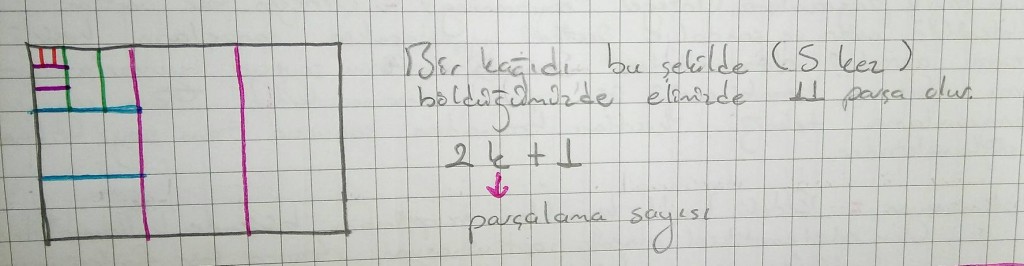 Bir kağıdı bu şekilde (5 kez)
böldüğümüzde elimizde 11 parça olur.
2k + 1
parçalama sayısı